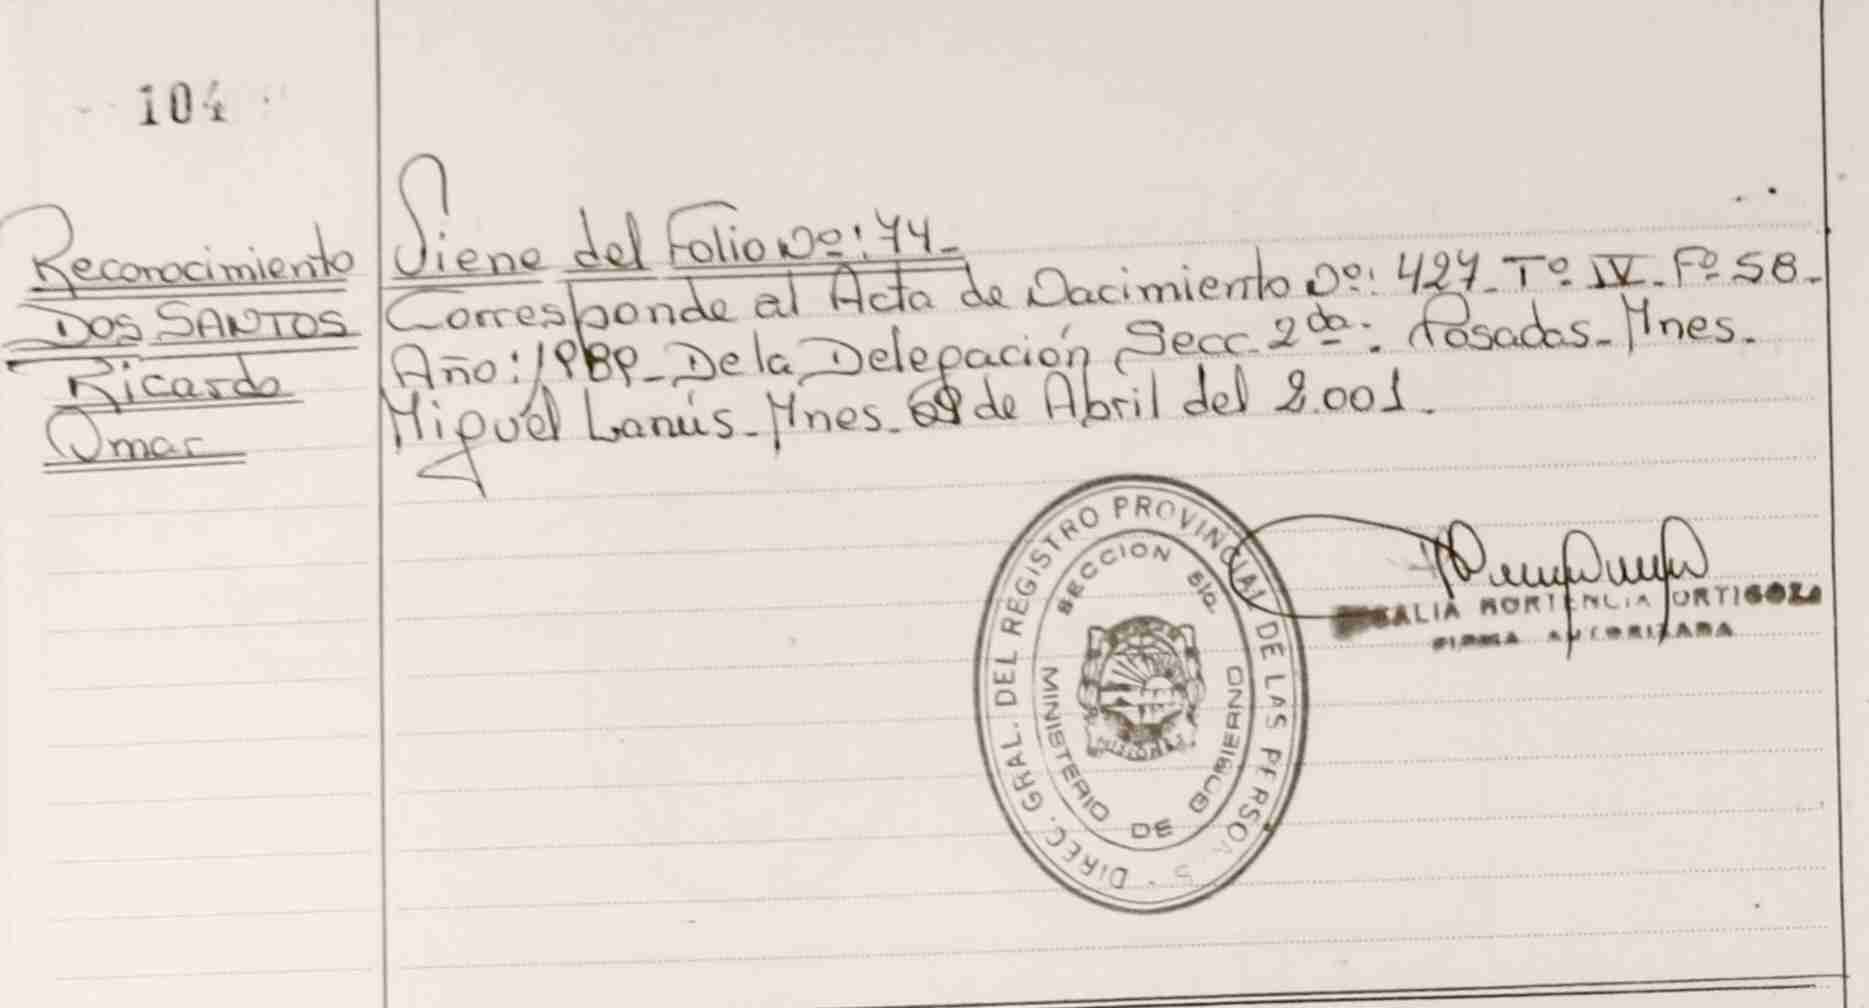 104
Reconocimiento
DOS SANTOS
Ricardo
Omar
Viene del Folio Nº: 74.-
Corresponde al Acta de Nacimiento Nº: 427- Tº IV- Fº 58-
Año: 1989- De la Delegación Secc. 2da. Posadas- Mnes.
Miguel Lanús- Mnes. de Abril del 2.001.
DIREC. GRAL. DEL REGISTRO PROVINCIAL DE LAS PERSONAS
SECCION
MINISTERIO DE GOBIERNO
MISIONES
ROSALIA HORTENCIA ORTIGOZA
FIRMA AUTORIZADA